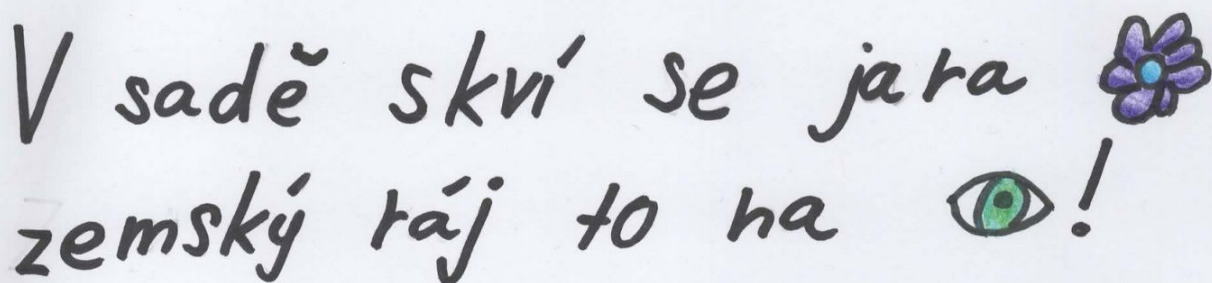 V sadě skví se jara
zemský ráj to na !